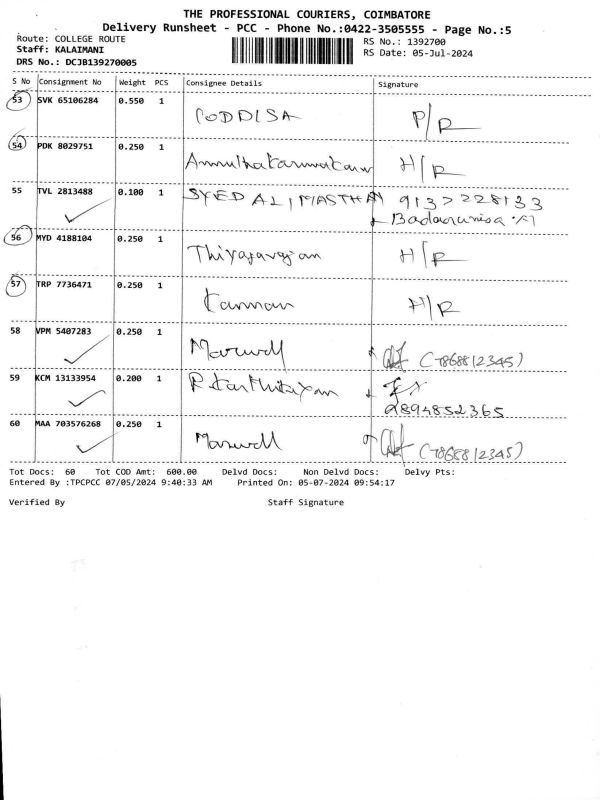 THE PROFESSIONAL COURIERS, COIMBATORE
Delivery Runsheet - PCC - Phone No.:0422-3505555 - Page No.:5
Route: COLLEGE ROUTE
Staff: KALAIMANI
DRS No.: DCJB139270005
RS No.: 1392700
RS Date: 05-Jul-2024
S No Consignment No Weight PCS Consignee Details Signature
53 SVK 65106284 0.550 1 CODDISA P/R
54 PDK 8029751 0.250 1 H/R
55 TVL 2813488 0.100 1 SYED ALI MASTHAN 9137228133
56 MYD 4188104 0.250 1 Thiyagarajan H/R
57 TRP 7736471 0.250 1 Kannan H/R
58 VPM 5407283 0.250 1 Maxwell (7868812345)
59 KCM 13133954 0.200 1 R. Karthikeyan
2894852365
60 MAA 703576268 0.250 1 Maxwell (7868812345)
Tot Docs: 60 Tot COD Amt: 600.00 Delvd Docs: Non Delvd Docs: Delvy Pts:
Entered By :TPCPCC 07/05/2024 9:40:33 AM Printed On: 05-07-2024 09:54:17
Verified By Staff Signature